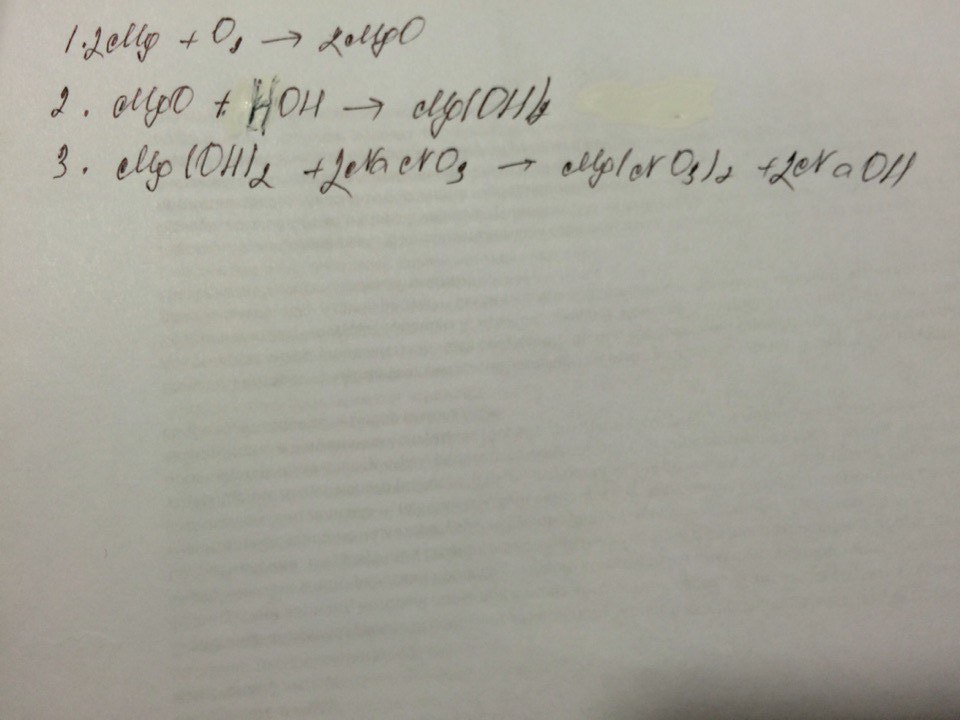 1. 2Mg + O₂ → 2MgO
2. MgO + HOH → Mg(OH)₂
3. Mg(OH)₂ + 2NaNO₃ → Mg(NO₃)₂ + 2NaOH